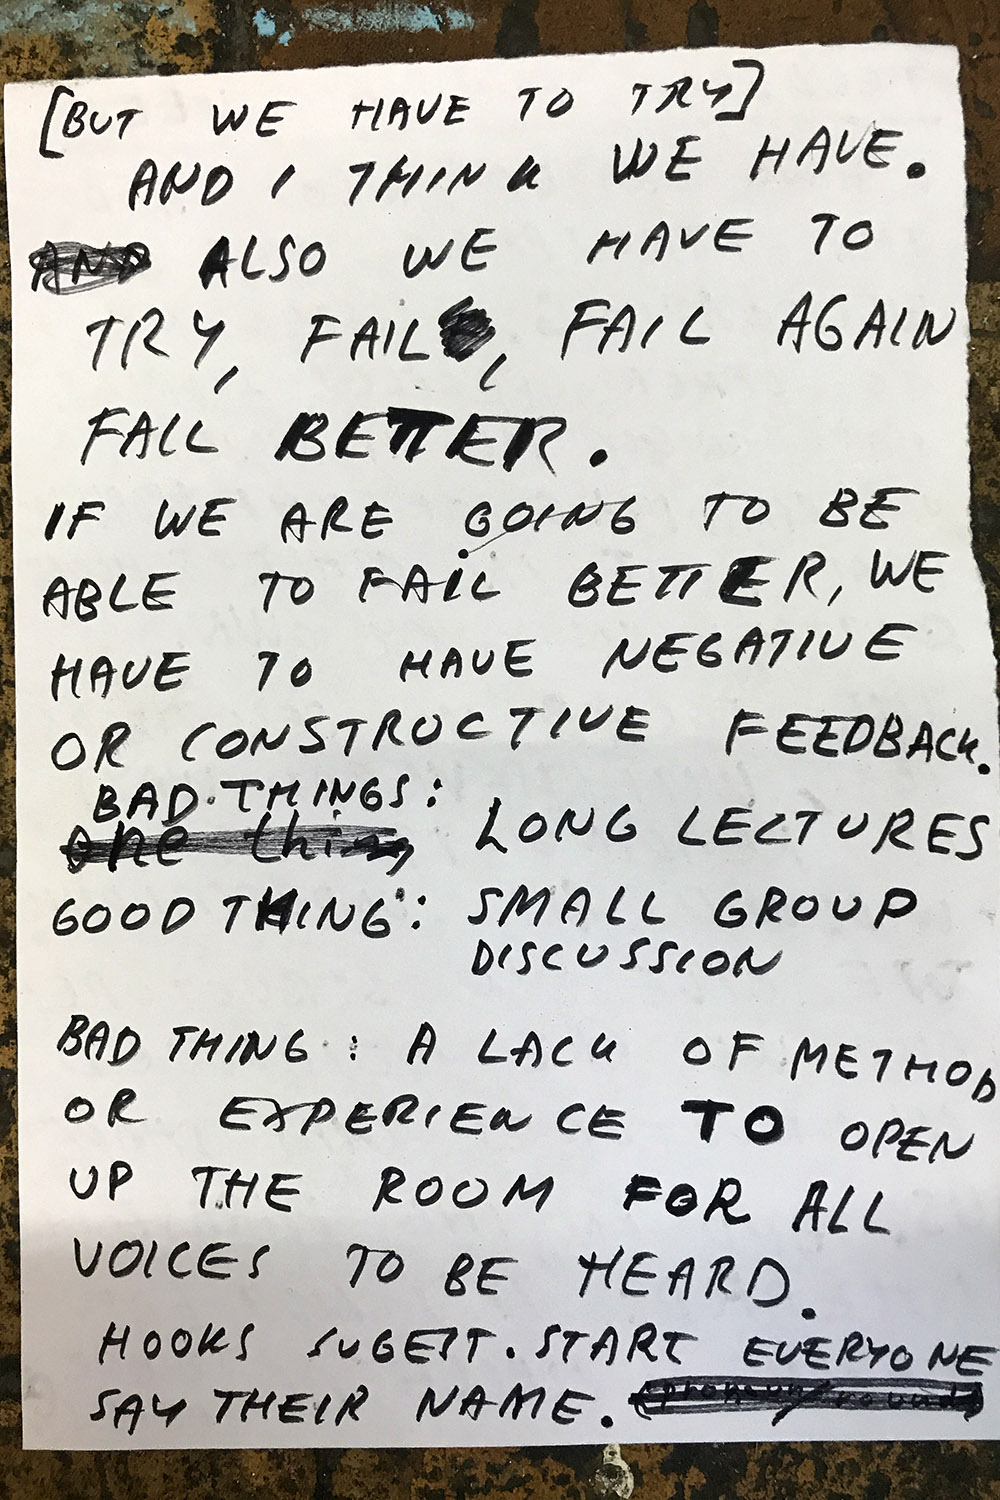 [BUT WE HAVE TO TRY]
AND I THINK WE HAVE.
AND ALSO WE HAVE TO
TRY, FAIL, FAIL AGAIN
FAIL BETTER.
IF WE ARE GOING TO BE
ABLE TO FAIL BETTER, WE
HAVE TO HAVE NEGATIVE
OR CONSTRUCTIVE FEEDBACK.
BAD THINGS:
one thing LONG LECTURES
GOOD THING: SMALL GROUP
DISCUSSION
BAD THING: A LACK OF METHOD
OR EXPERIENCE TO OPEN
UP THE ROOM FOR ALL
VOICES TO BE HEARD.
HOOKS SUGEST. START EVERYONE
SAY THEIR NAME.